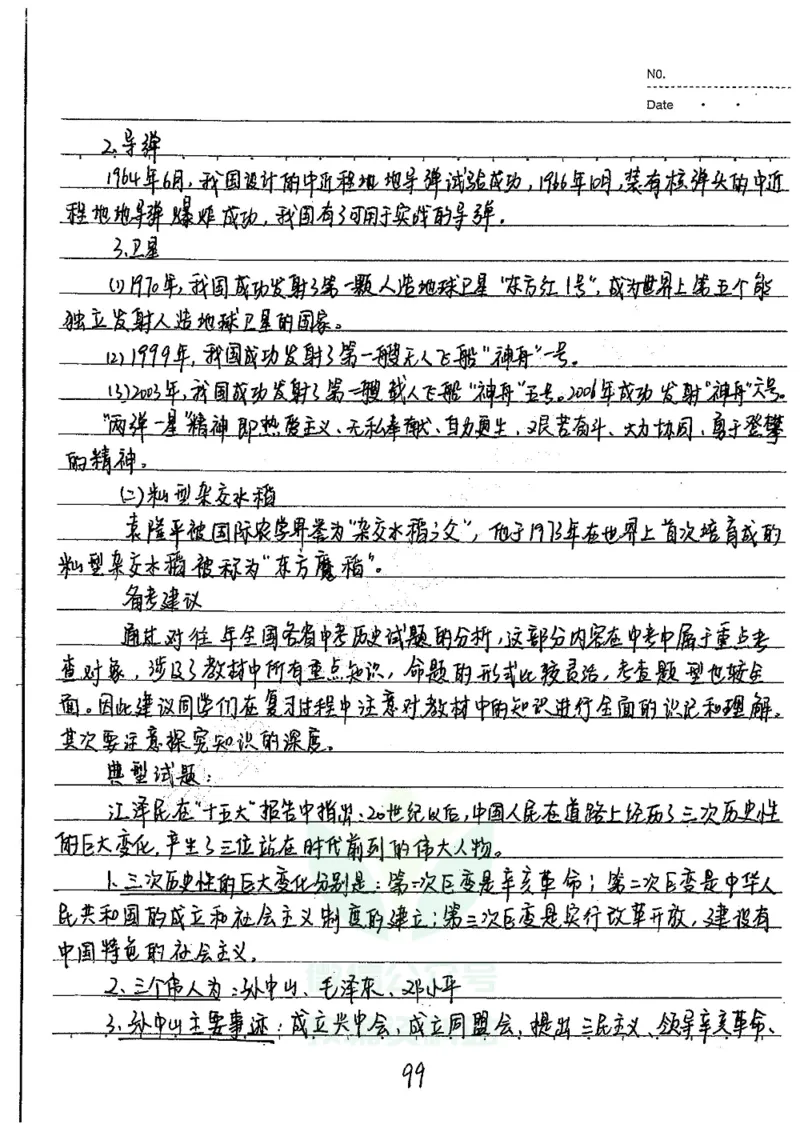 NO.
Date
2.导弹
1964年6月,我国设计的中近程地地导弹试验成功,1966年10月,装有核弹头的中近
程地地导弹爆炸成功,我国有了可用于实战的导弹。
3.卫星
(1)1970年,我国成功发射了第一颗人造地球卫星“东方红1号”,成为世界上第五个能
独立发射人造地球卫星的国家。
(2)1999年,我国成功发射了第一艘无人飞船“神舟”一号。
(3)2003年,我国成功发射了第一艘载人飞船“神舟”五号。2006年成功发射“神舟”六号。
“两弹一星”精神即热爱主义、无私奉献、自力更生、艰苦奋斗、大力协同、勇于登攀
的精神。
(二)籼型杂交水稻
袁隆平被国际农学界誉为“杂交水稻之父”,他于1973年在世界上首次培育成的
籼型杂交水稻被称为“东方魔稻”。
备考建议
通过对往年全国各省中考历史试题的分析,这部分内容在中考中属于重点考
查对象,涉及了教材中所有重点知识,命题的形式比较灵活,考查题型也较全
面。因此建议同学们在复习过程中注意对教材中的知识进行全面的识记和理解。
其次要注意探究知识的深度。
典型试题:
江泽民在“十五大”报告中指出:20世纪以后,中国人民在道路上经历了三次历史性
的巨大变化,产生了三位站在时代前列的伟大人物。
1.三次历史性的巨大变化分别是:第一次巨变是辛亥革命;第二次巨变是中华人
民共和国的成立和社会主义制度的建立;第三次巨变是实行改革开放,建设有
中国特色的社会主义。
2.三个伟人为:孙中山、毛泽东、邓小平
3.孙中山主要事迹:成立兴中会,成立同盟会,提出三民主义、领导辛亥革命、
99